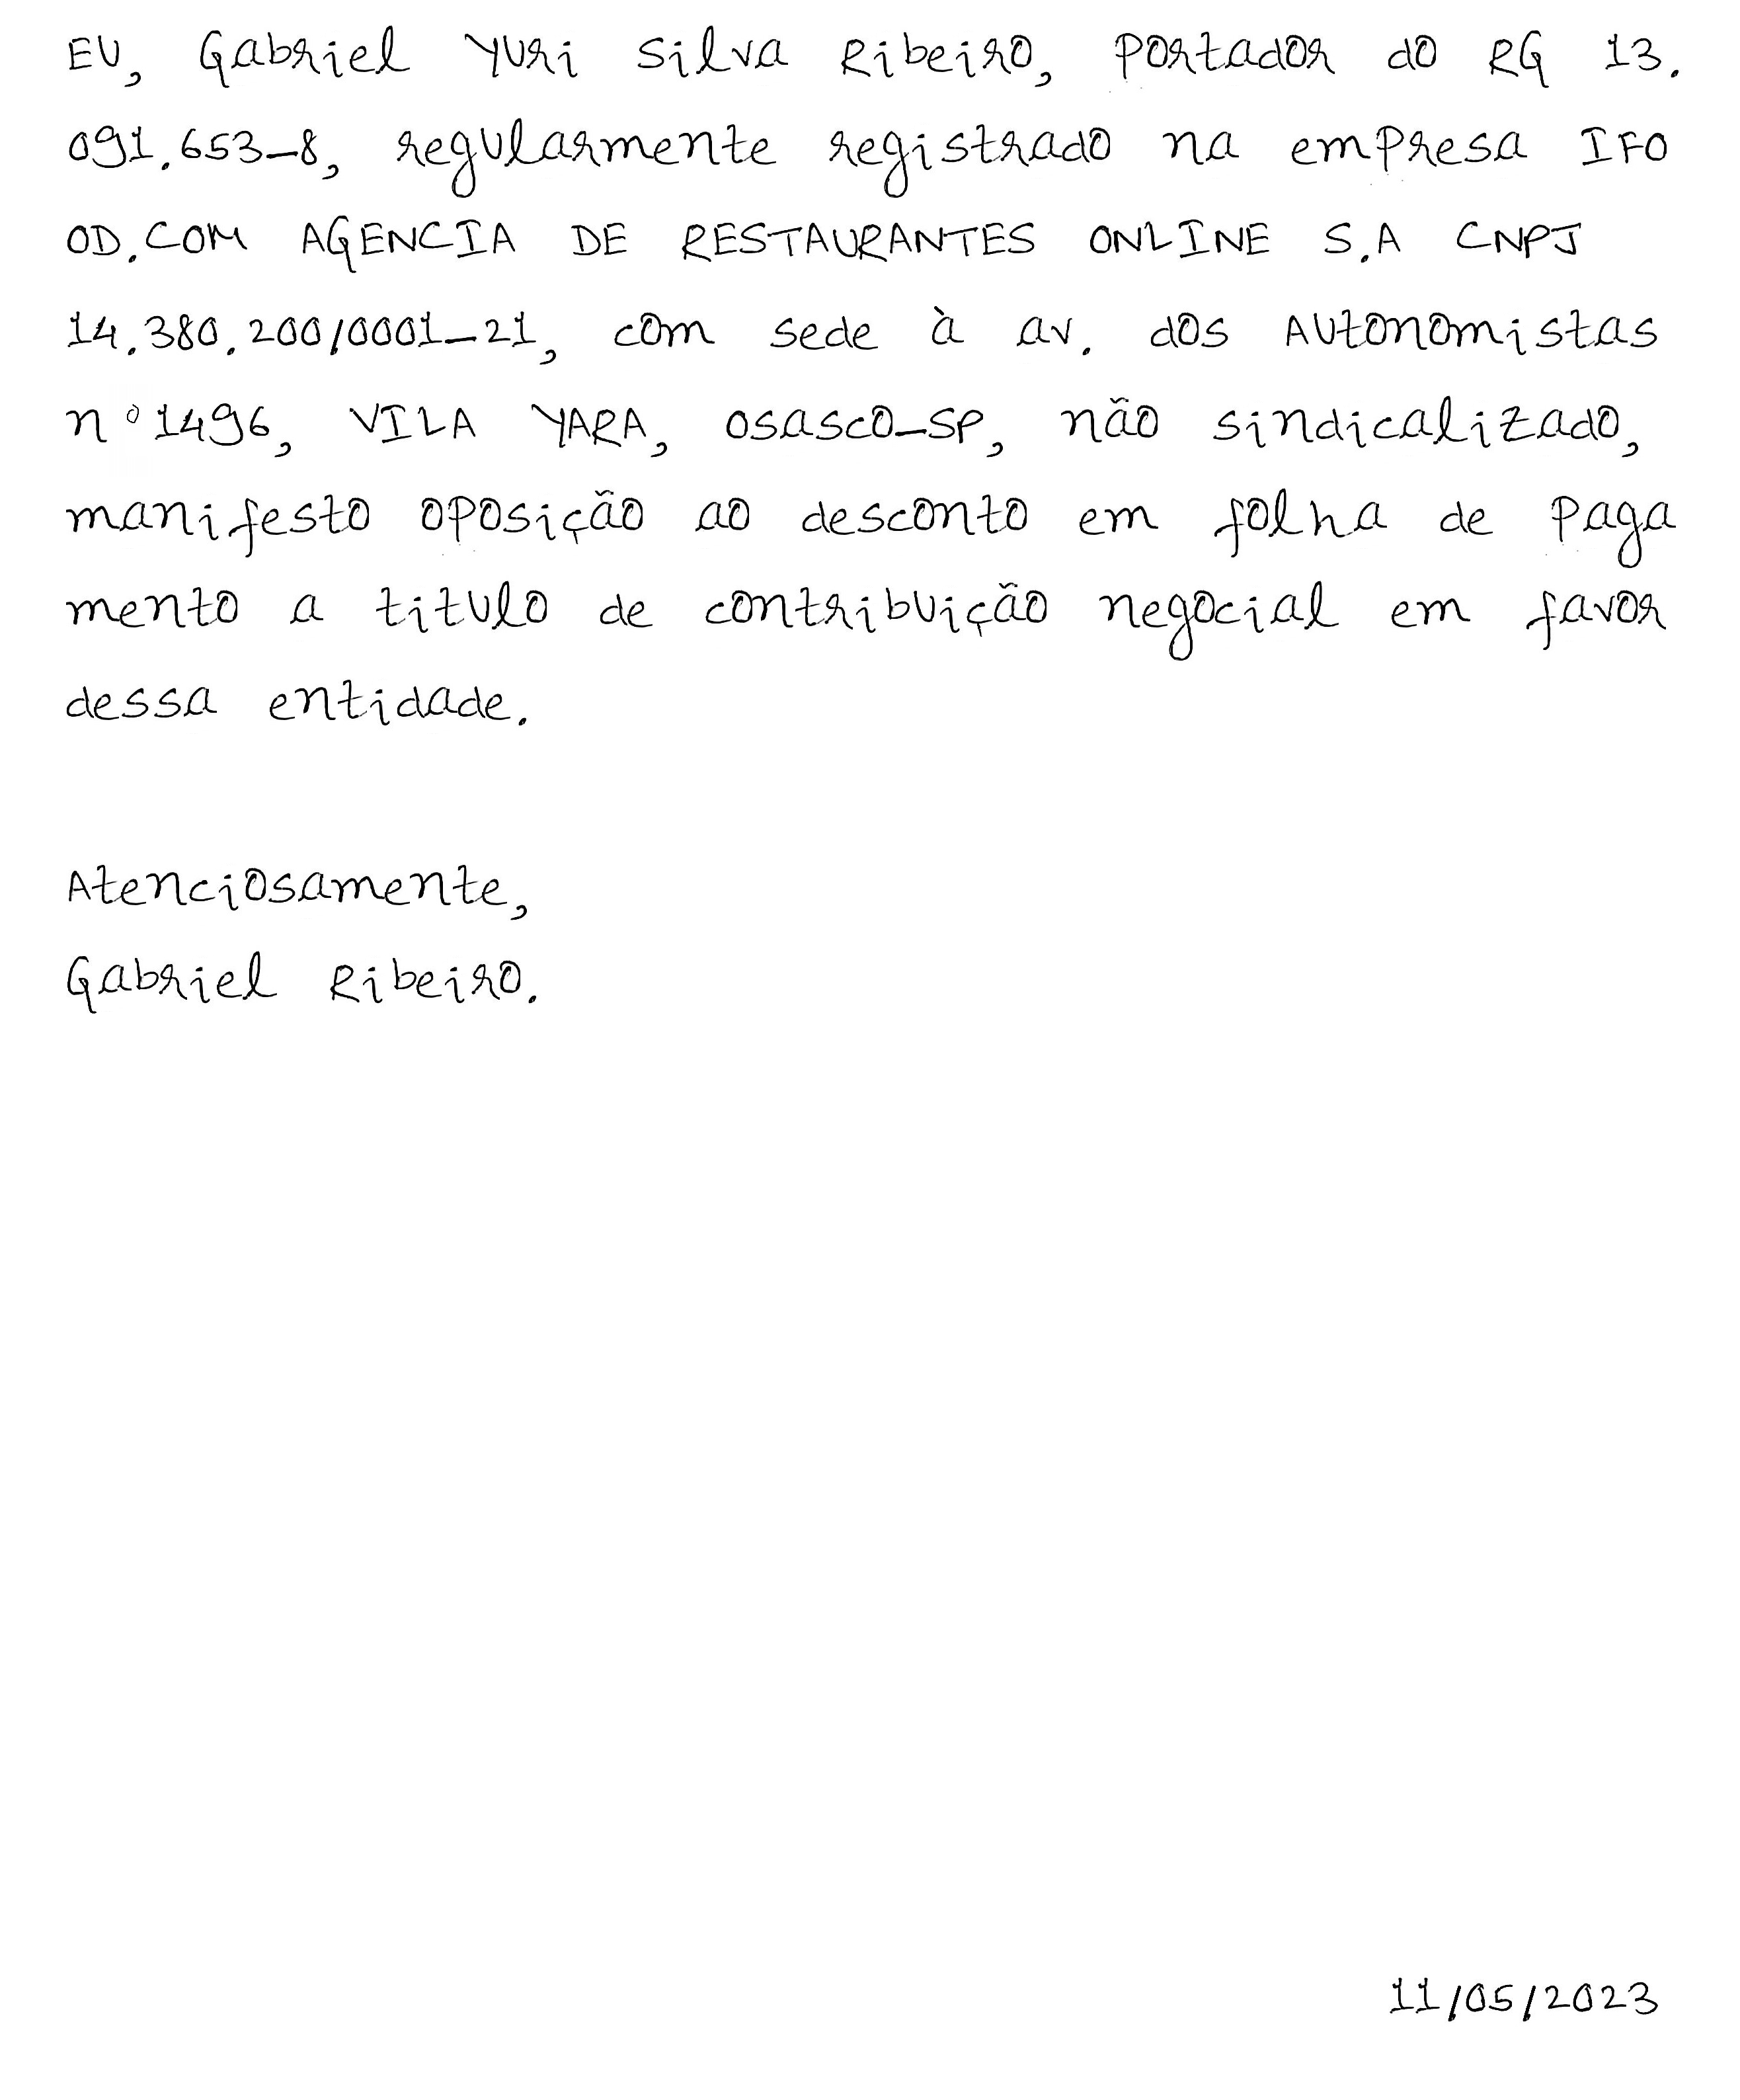 EU, Gabriel Yuri Silva Ribeiro, portador do RG 13.
091.653-8, regularmente registrado na empresa IFO
OD.COM AGENCIA DE RESTAURANTES ONLINE S.A CNPJ
14.380.200/0001-21, com sede à av. dos Autonomistas
n°1496, VILA YARA, osasco-SP, não sindicalizado,
manifesto oposição ao desconto em folha de paga
mento a titulo de contribuição negocial em favor
dessa entidade.
Atenciosamente,
Gabriel Ribeiro.
11/05/2023